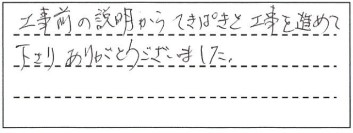 工事前の説明からてきぱきと工事を進めて
下さりありがとうございました。